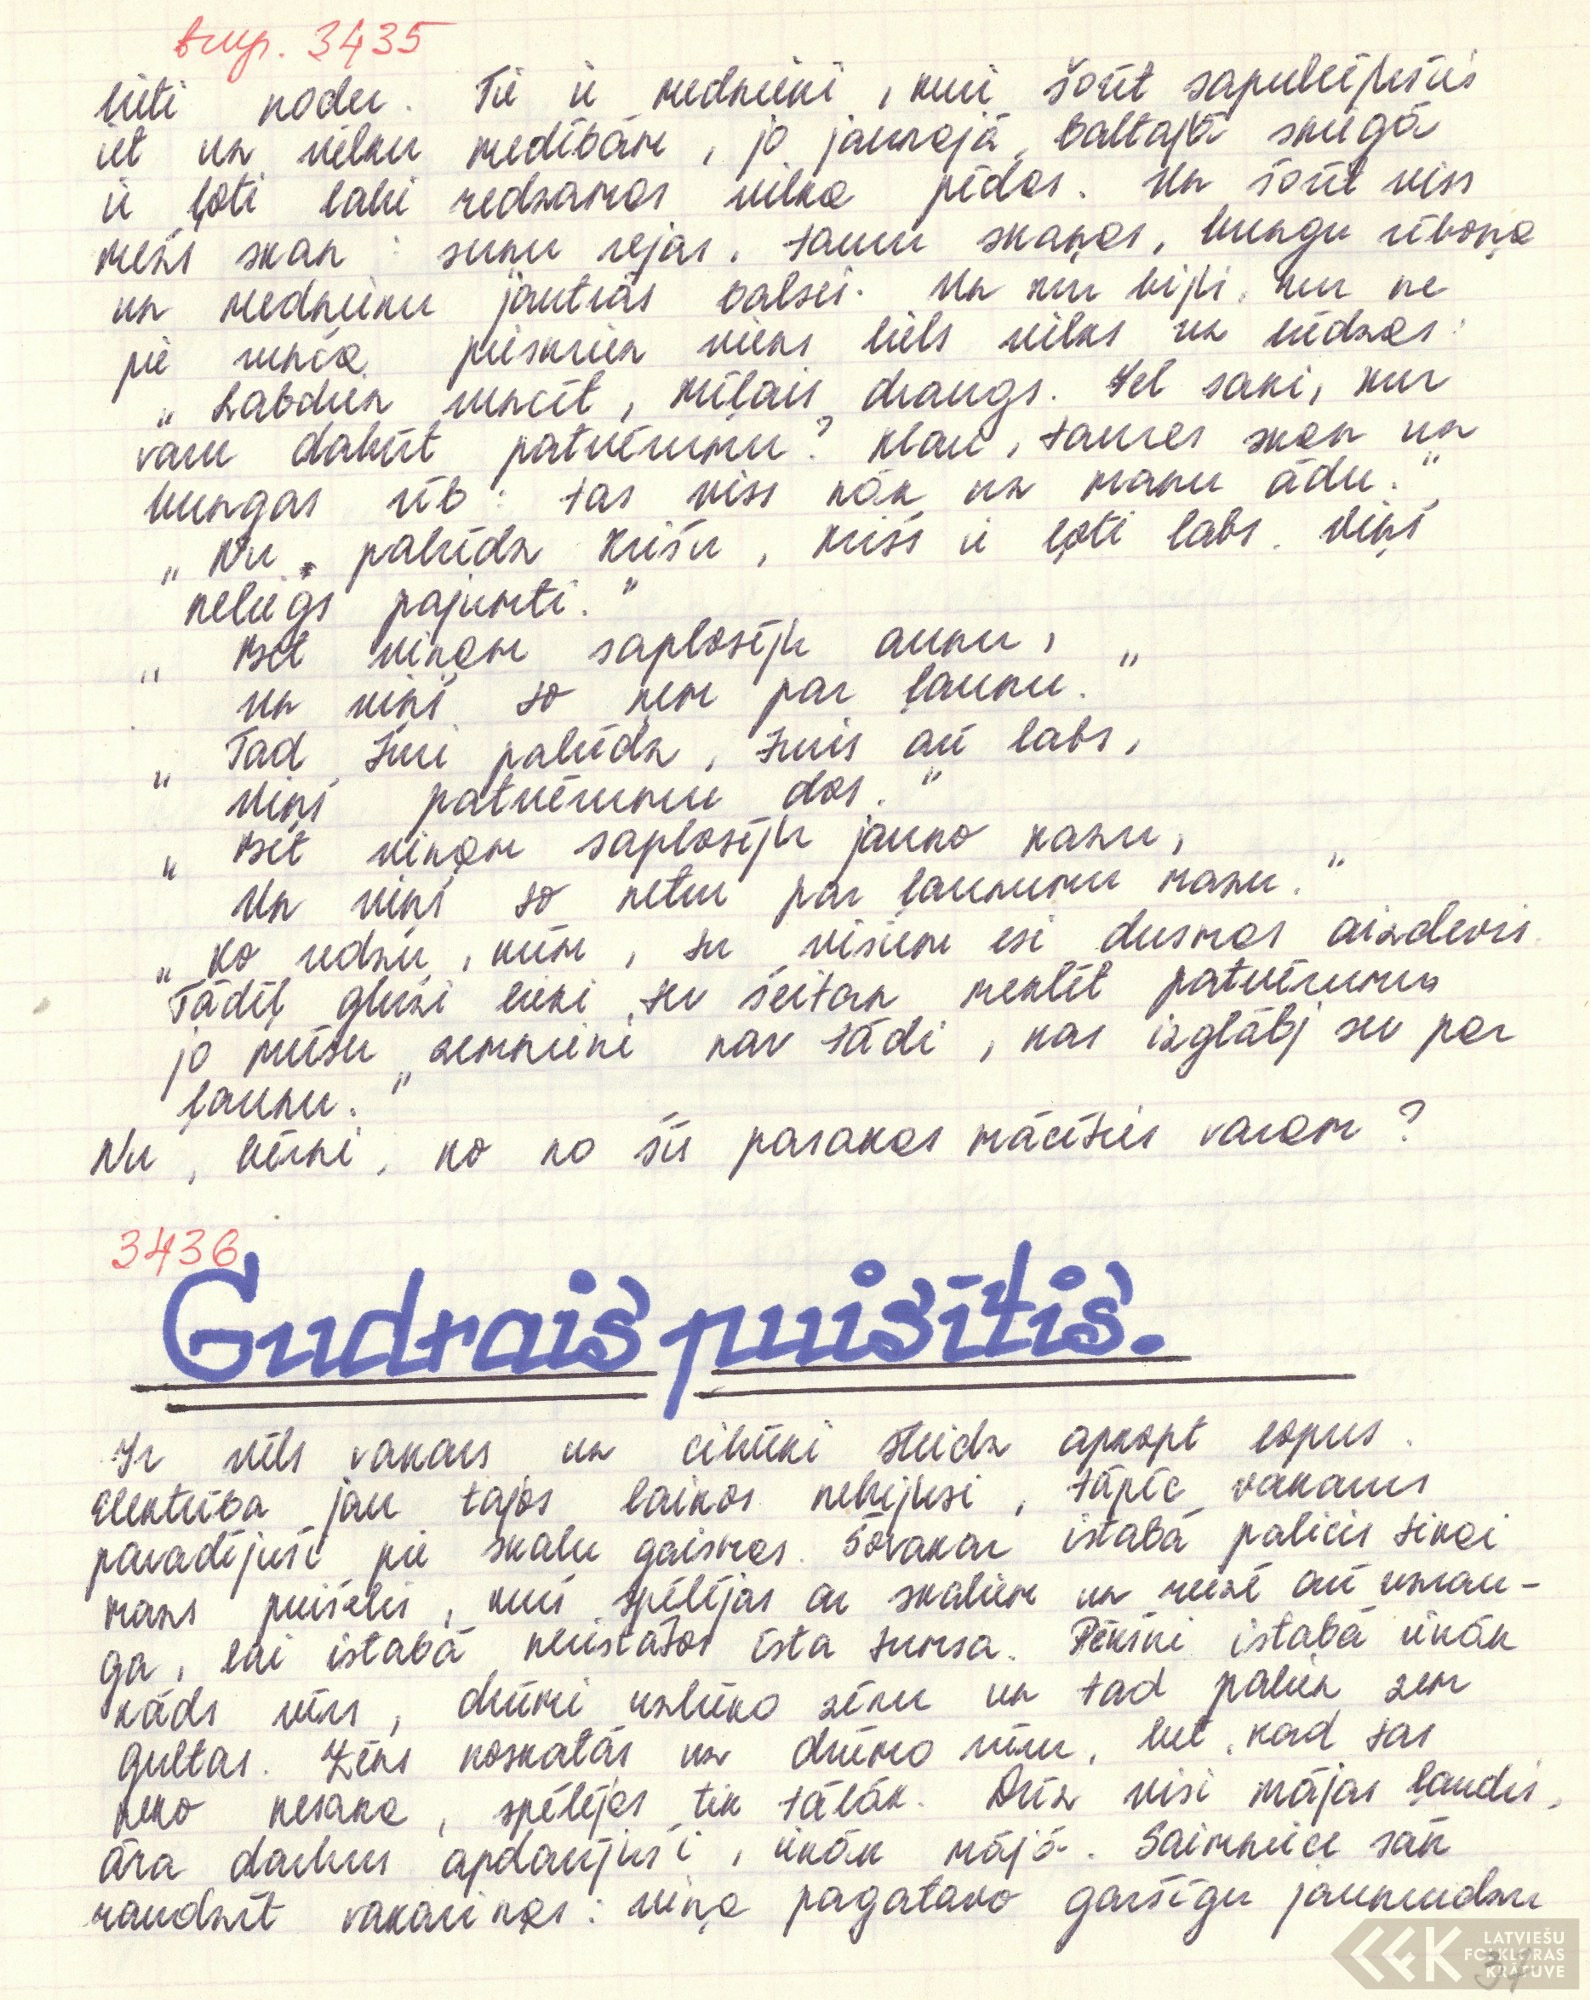 turp. 3435
bieti nodur. Tie ir mednieki, kuri šorīt sapulcējušies
iet uz vilku medībām, jo jaunajā, baltajā sniegā
ir ļoti labi redzamas vilka pēdas. Un šorīt viss
mežs skan: suņu rejas, tauru skaņas, bungu rīboņa
un mednieku jautrās balsis. Un kur bijis, kur ne
pie runča pieskrien viens liels vilks un lūdzas:
„Labdien runcīt, mīļais draugs. Vel saki, kur
varu dabūt patvērumu? Klau, taures skan un
bungas rīb: tas viss nāk uz manu ādu."
„Nu, palūdz Krišu, Krišs ir ļoti labs. Viņš
neliegs pajumti."
„Bet viņam saplosīju aunu,
Un viņš to ņem par ļaunu."
„Tad Juri palūdz, Juris arī labs,
Viņš patvērumu dos."
„Bet viņam saplosīju jauko kazu,
Un viņš to netur par ļaunumu mazu."
„Ko redzu, kūm, tu visiem esi dusmas aizdevis.
Tādēļ gluži lieki tev šeitan meklēt patvērumu
jo mūsu zemnieki nav tādi, kas izglābj sev par
ļaunu."
Nu, bērni, ko no šīs pasakas mācīties varam?
3436
Gudrais puisītis.
Ir vēls vakars un cilvēki steidz apkopt lopus.
Elektrība jau tajos laikos nebijusi, tāpēc vakarus
pavadījuši pie skalu gaismas. Šovakar istabā palicis tikai
mazs puisēlis, kurš spēlējas ar skaliem un reizē arī uzrau-
ga, lai istabā neiestātos īsta tumsa. Pēkšņi istabā ienāk
kāds vīrs, drūmi uzlūko zēnu un tad palien zem
gultas. Zēns noskatās uz drūmo vīru, bet, kad tas
neko nesaka, spēlējas tik tālāk. Drīz visi mājas ļaudis,
āra darbus apdarījuši, ienāk mājā. Saimniece sāk
raudzīt vakariņas: viņa pagatavo garšīgu jaunrudzu
LATVIEŠU
FOLKLORAS
KRĀTUVE
37